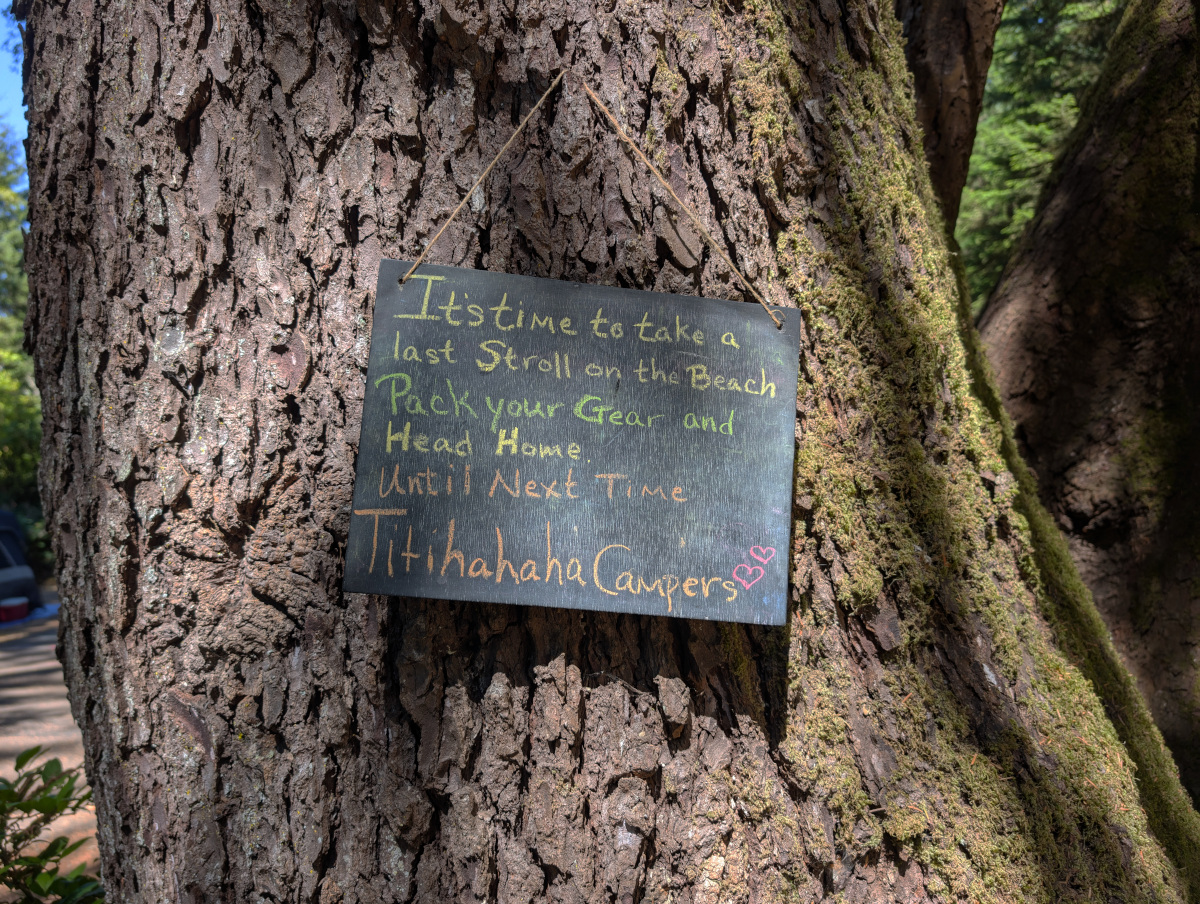 It's time to take a
last Stroll on the Beach
Pack your Gear and
Head Home.
Until Next Time
Titihahaha Campers